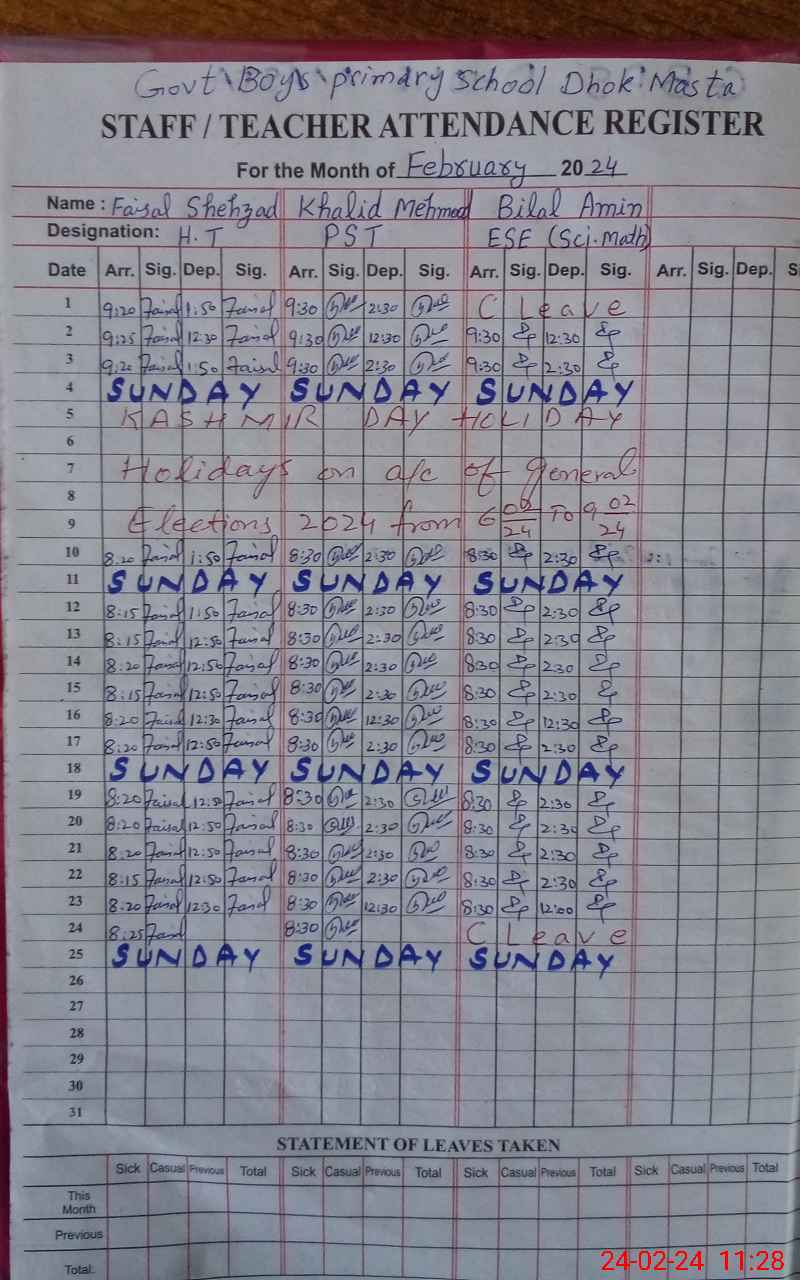 Govt Boys primary School Dhok Masta
STAFF / TEACHER ATTENDANCE REGISTER
For the Month of February 2024
Name : Faisal Shehzad Khalid Mehmood Bilal Amin
Designation: H.T PST ESE (Sci.Math)
Date Arr. Sig. Dep. Sig. Arr. Sig. Dep. Sig. Arr. Sig. Dep. Sig. Arr. Sig. Dep. S
1 9:20 Faisal 1:50 Faisal 9:30 2:30 C Leave
2 9:25 Faisal 12:30 Faisal 9:30 12:30 9:30 12:30
3 9:20 Faisal 1:50 Faisal 9:30 2:30 9:30 2:30
4 SUNDAY SUNDAY SUNDAY
5 KASHMIR DAY HOLIDAY
6
7 Holidays on a/c of general
8
9 Elections 2024 from 6 02/24 To 9 02/24
10 8:20 Faisal 1:50 Faisal 8:30 2:30 8:30 2:30
11 SUNDAY SUNDAY SUNDAY
12 8:15 Faisal 1:50 Faisal 8:30 2:30 8:30 2:30
13 8:15 Faisal 12:50 Faisal 8:30 2:30 8:30 2:30
14 8:20 Faisal 12:50 Faisal 8:30 2:30 8:30 2:30
15 8:15 Faisal 12:50 Faisal 8:30 2:30 8:30 2:30
16 8:20 Faisal 12:30 Faisal 8:30 12:30 8:30 12:30
17 8:20 Faisal 12:50 Faisal 8:30 2:30 8:30 2:30
18 SUNDAY SUNDAY SUNDAY
19 8:20 Faisal 12:50 Faisal 8:30 2:30 8:30 2:30
20 8:20 Faisal 12:50 Faisal 8:30 2:30 8:30 2:30
21 8:20 Faisal 12:50 Faisal 8:30 2:30 8:30 2:30
22 8:15 Faisal 12:50 Faisal 8:30 2:30 8:30 2:30
23 8:20 Faisal 12:30 Faisal 8:30 12:30 8:30 12:00
24 8:25 Faisal 8:30 C Leave
25 SUNDAY SUNDAY SUNDAY
26
27
28
29
30
31
STATEMENT OF LEAVES TAKEN
Sick Casual Previous Total Sick Casual Previous Total Sick Casual Previous Total Sick Casual Previous Total
This
Month
Previous
Total:
24-02-24 11:28